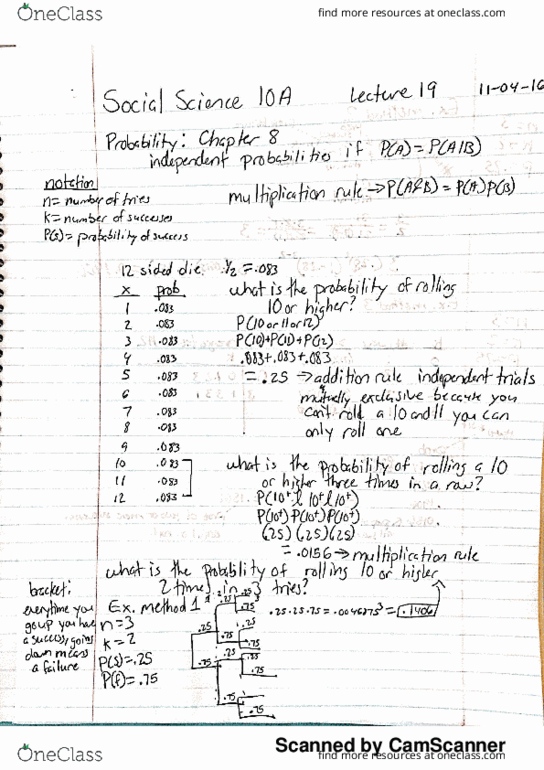 OneClass
find more resources at oneclass.com
Social Science 10A Lecture 19 11-04-16
Probability: Chapter 8
independent probabilities if P(A) = P(A|B)
notation
n= number of tries
k= number of successes
P(s)= probability of success
multiplication rule → P(A&B) = P(A)P(B)
12 sided die 1/12 = .083
x prob
1 .083
2 .083
3 .083
4 .083
5 .083
6 .083
7 .083
8 .083
9 .083
10 .083
11 .083
12 .083
what is the probability of rolling
10 or higher?
P(10 or 11 or 12)
P(10)+P(11)+P(12)
.083+.083+.083
= .25 → addition rule independent trials
mutually exclusive because you
can't roll a 10 and 11 you can
only roll one
what is the probability of rolling a 10
or higher three times in a row?
P(10+ & 10+ & 10+)
P(10+) P(10+) P(10+)
(.25) (.25) (.25)
= .0156 → multiplication rule
what is the probability of rolling 10 or higher
2 times in 3 tries?
bracket:
everytime you
go up you have
a success, going
down means
a failure
Ex. method 1
n=3
k=2
P(s)=.25
P(f)=.75
.25
.75
.25
.75
.25
.75
.25
.75
.25
.75
.75
.25·.25·.75 = .046875 = .1406
Scanned by CamScanner
OneClass
find more resources at oneclass.com